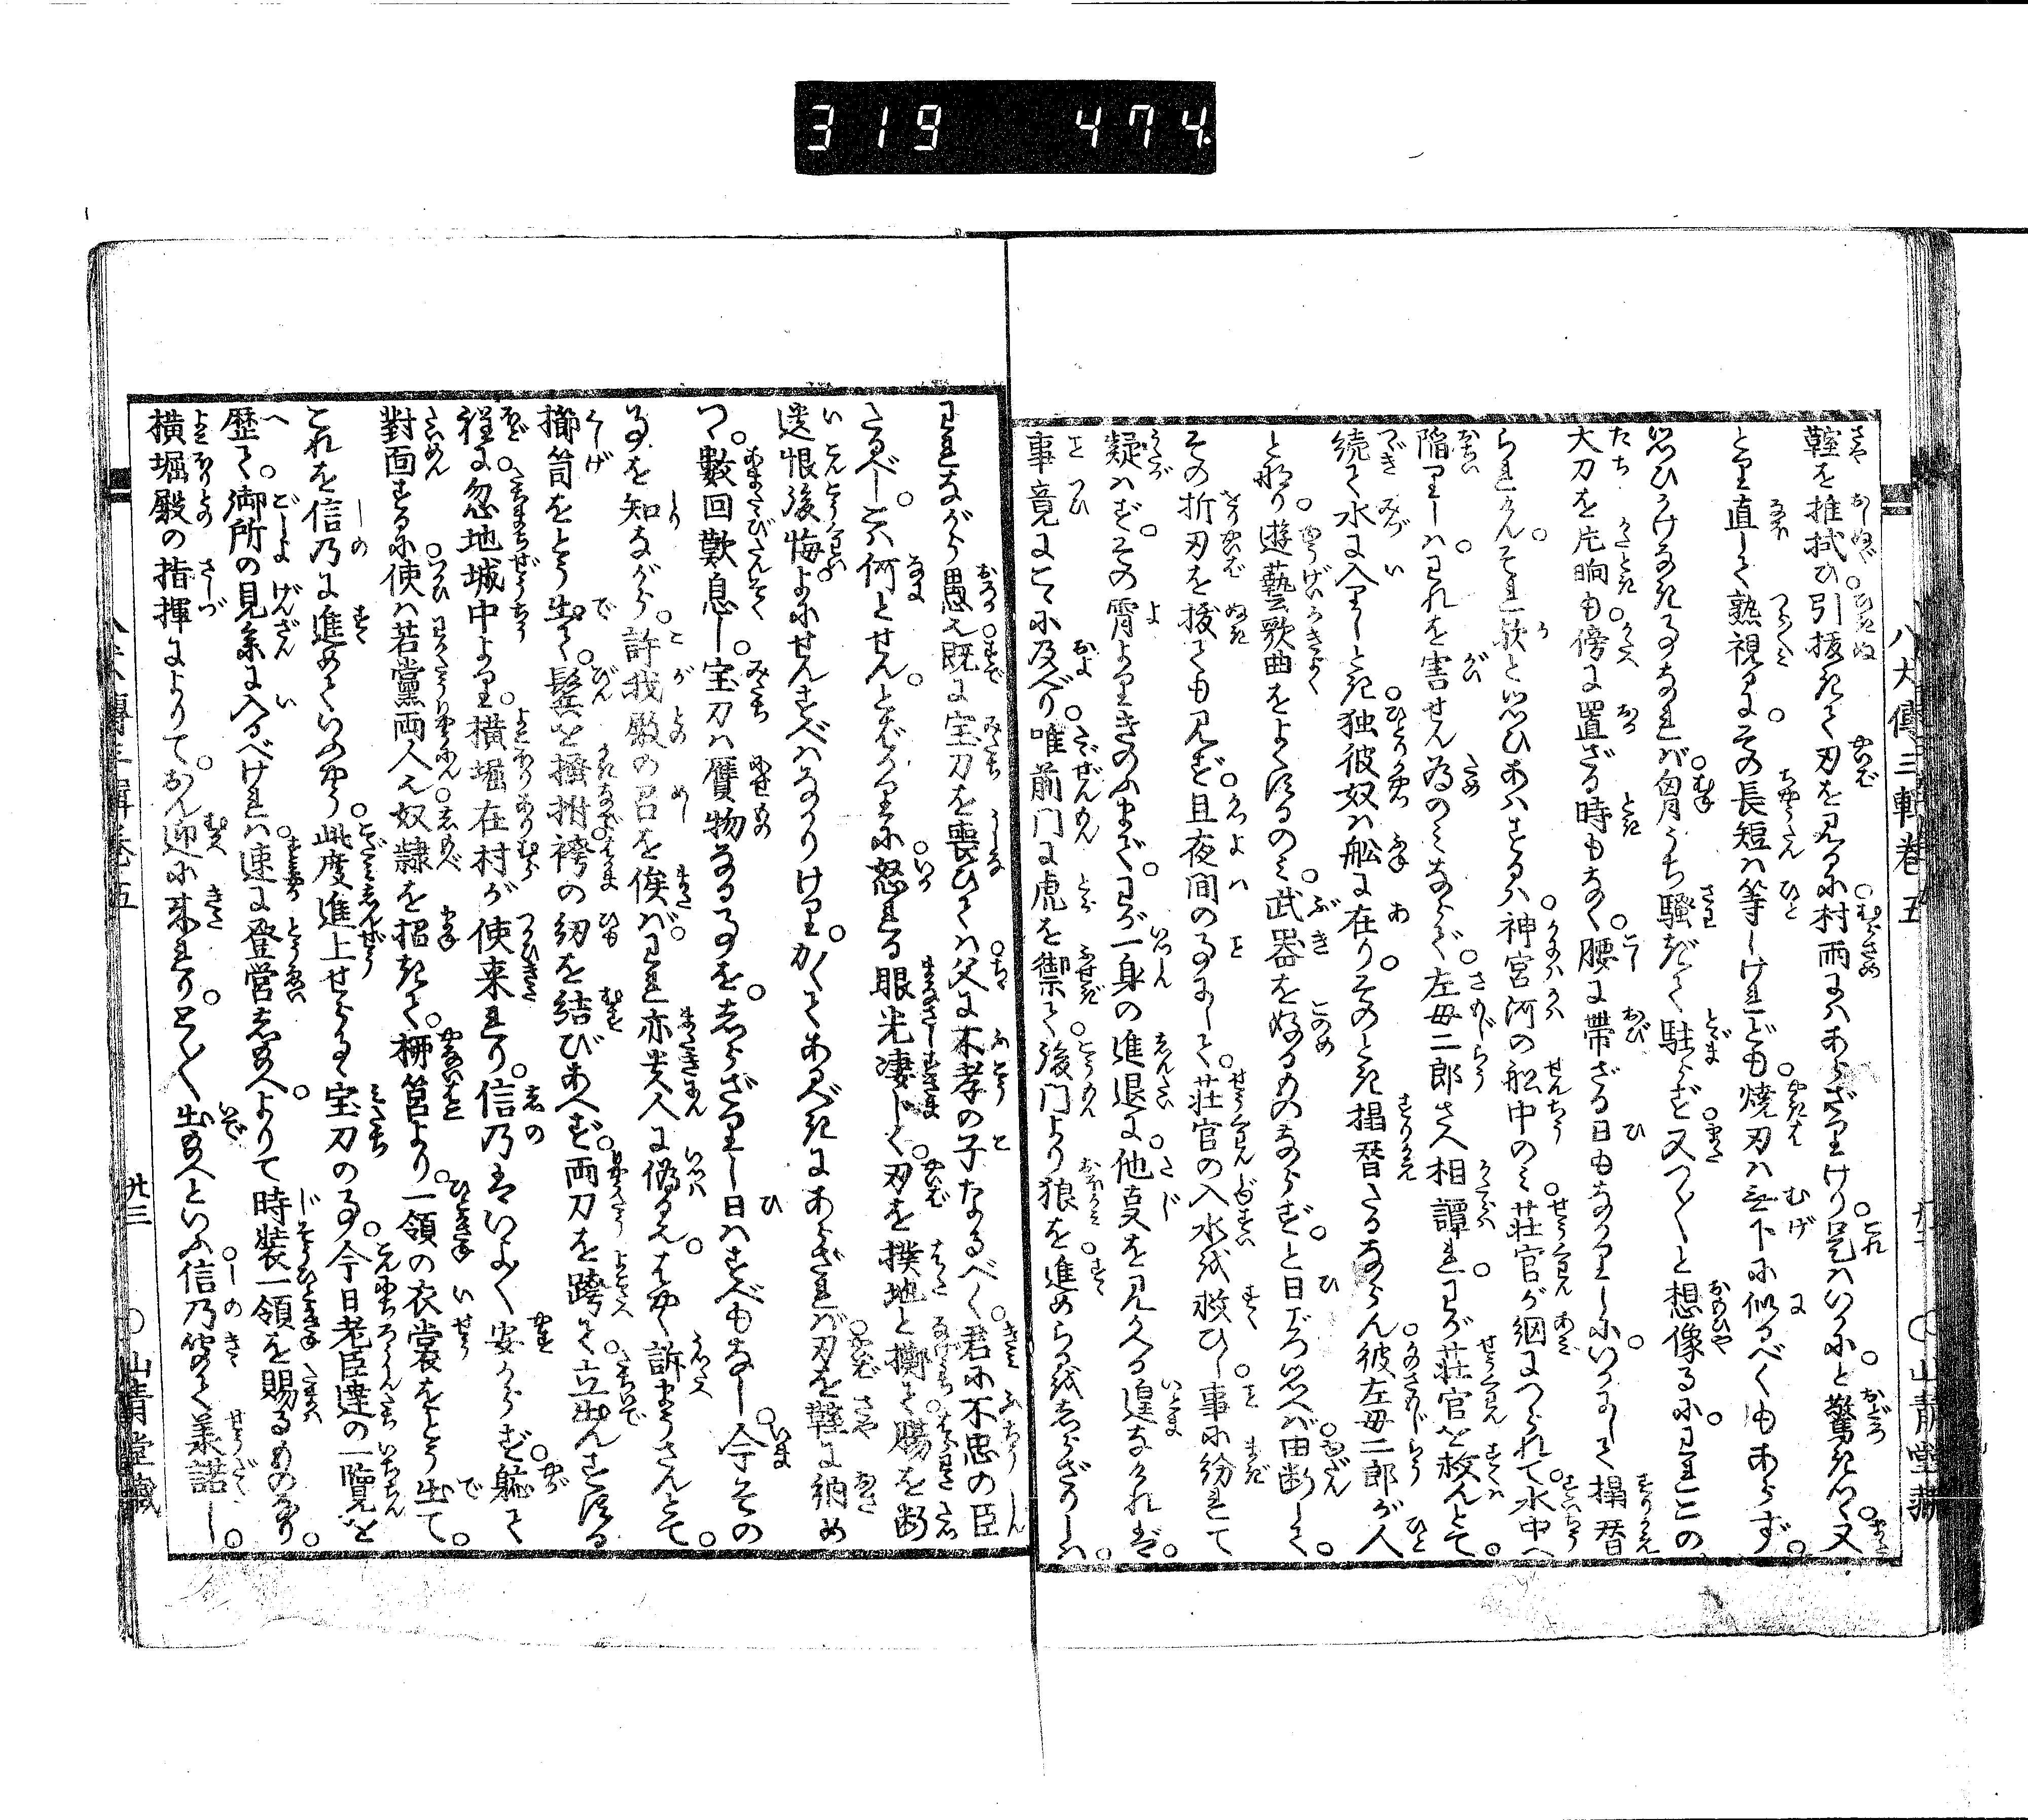 319 474
八犬傳三輯巻五
山青堂藏
鞘を推拭ひ引抜きて刃を見るに村雨にはあらざりけり是はいかにと驚きつゝ又
とり直して熟視るにその長短は等しけれども焼刃は無下に似るべくもあらず
思ひかけなき事なれば胸うち騒ぎて駐らず又つく〲と想像るにわれこの
大刀を片晌も傍に置ざる時もなく腰に帶ざる日もなかりしにいかにして搨替
られけんそれ歟と思ひあはするは神宮河の舩中のみ荘官が網につられて水中へ
陥りしはわれを害せん為のみならず左母二郎さへ相譚れわが荘官を救んとて
続て水に入りしとき独彼奴は舩に在りそのとき搨替たるならん彼左母二郎が人
と作り遊藝歌曲をよくするのみ武器を好るものならずと日ごろ思へば由断して
その折刃を抜ても見ず且夜間の事にして荘官の入水を救ひし事に紛れて
疑はずその霄よりきのふまでわが一身の進退に他支を見かへる遑なければ
事竟にこゝに及べり唯前門に虎を禦て後門より狼を進めらるをしらざりしは
われながら愚也既に宝刀を喪ひては父に不孝の子なるべく君に不忠の臣
たるべしこは何とせんとばかりに怒れる眼光凄じく刃を撲地と擲て膓を断
遺恨後悔よにせんすべはなかりけりかくてあるべきにあらざれば刃を鞘に納め
つ數回歎息し宝刀は贋物なる事をしらざりし日はすべもなし今その
事を知ながら許我殿の召を俟ばわれ亦貴人に偽る也はやく訴まうさんとて
櫛笥をとう出て鬂を掻拊袴の紐を結びあへず両刀を跨て立出んとする
程に忽地城中より横堀在村が使来れり信乃はいよ〱安からず軈て
對面するに使は若黨両人也奴隷を招きて栁筥より一領の衣裳をとう出て
これを信乃に進めていふやう此度進上せらるゝ宝刀の事今日老臣達の一覧を
歴て御所の見参に入るべければ速に登営し給へよりて時装一領を賜るものなり
横堀殿の指揮によりておん迎に来れりとく〱出給へといふ信乃は聞て羕諾し
八犬傳三輯巻五
廿三
山青堂藏